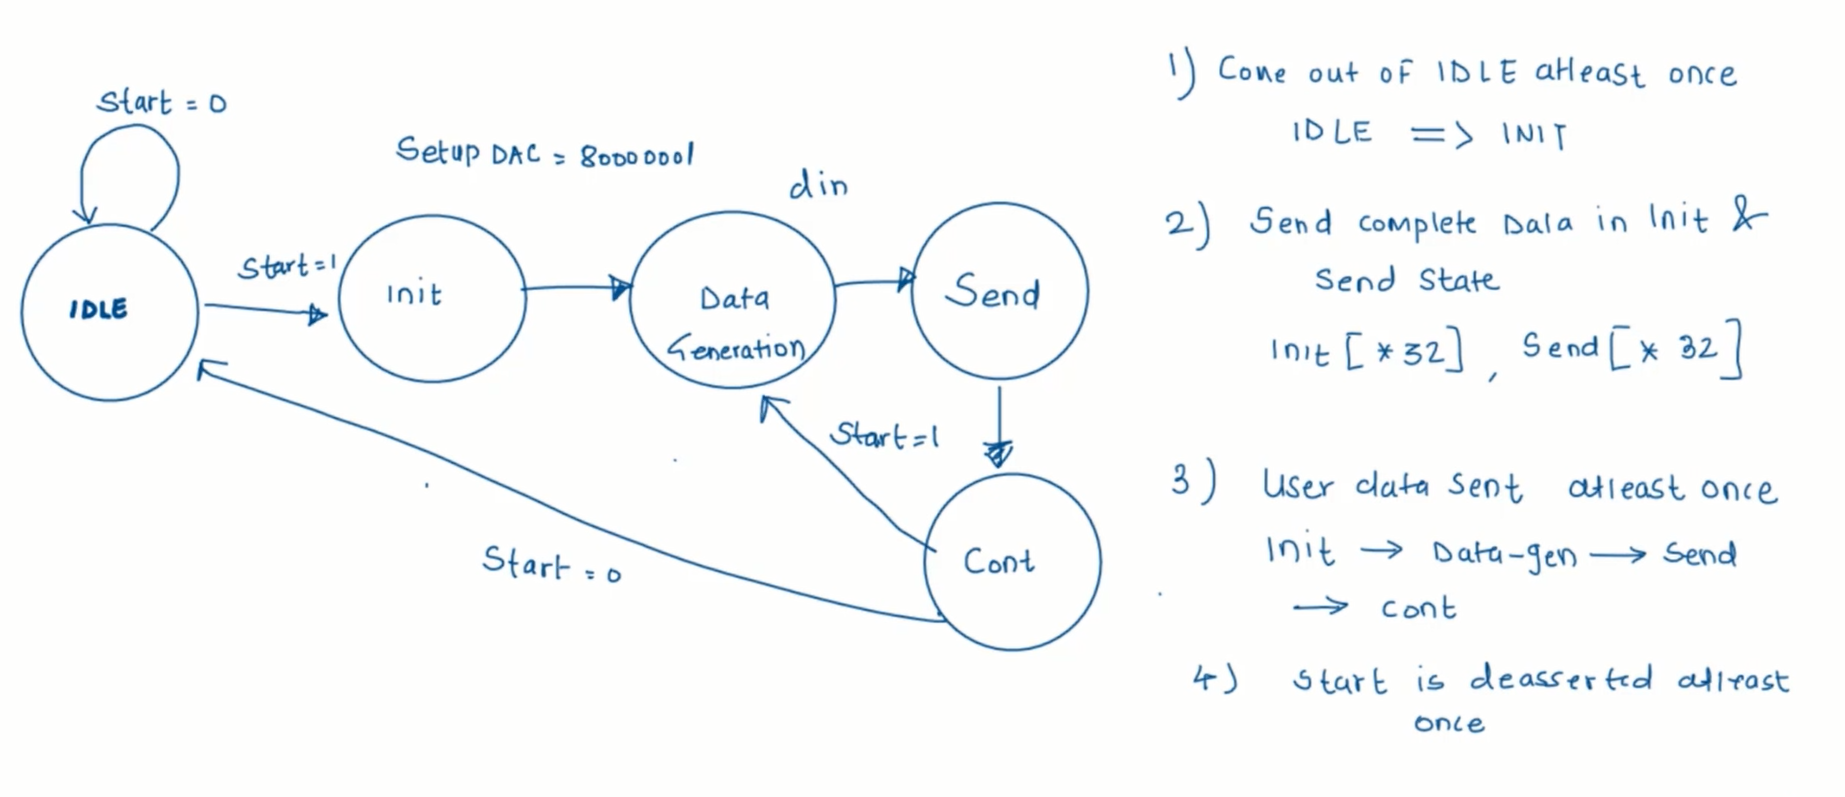 Start = 0
Setup DAC = 80000001
din
Start=1
IDLE
Init
Data
Generation
Send
Start=1
Cont
Start = 0
1) Come out of IDLE atleast once
IDLE => INIT
2) Send complete Data in Init &
Send State
Init [*32] , Send [* 32]
3) User data sent atleast once
Init → Data-gen → Send
→ cont
4) start is deasserted atleast
once